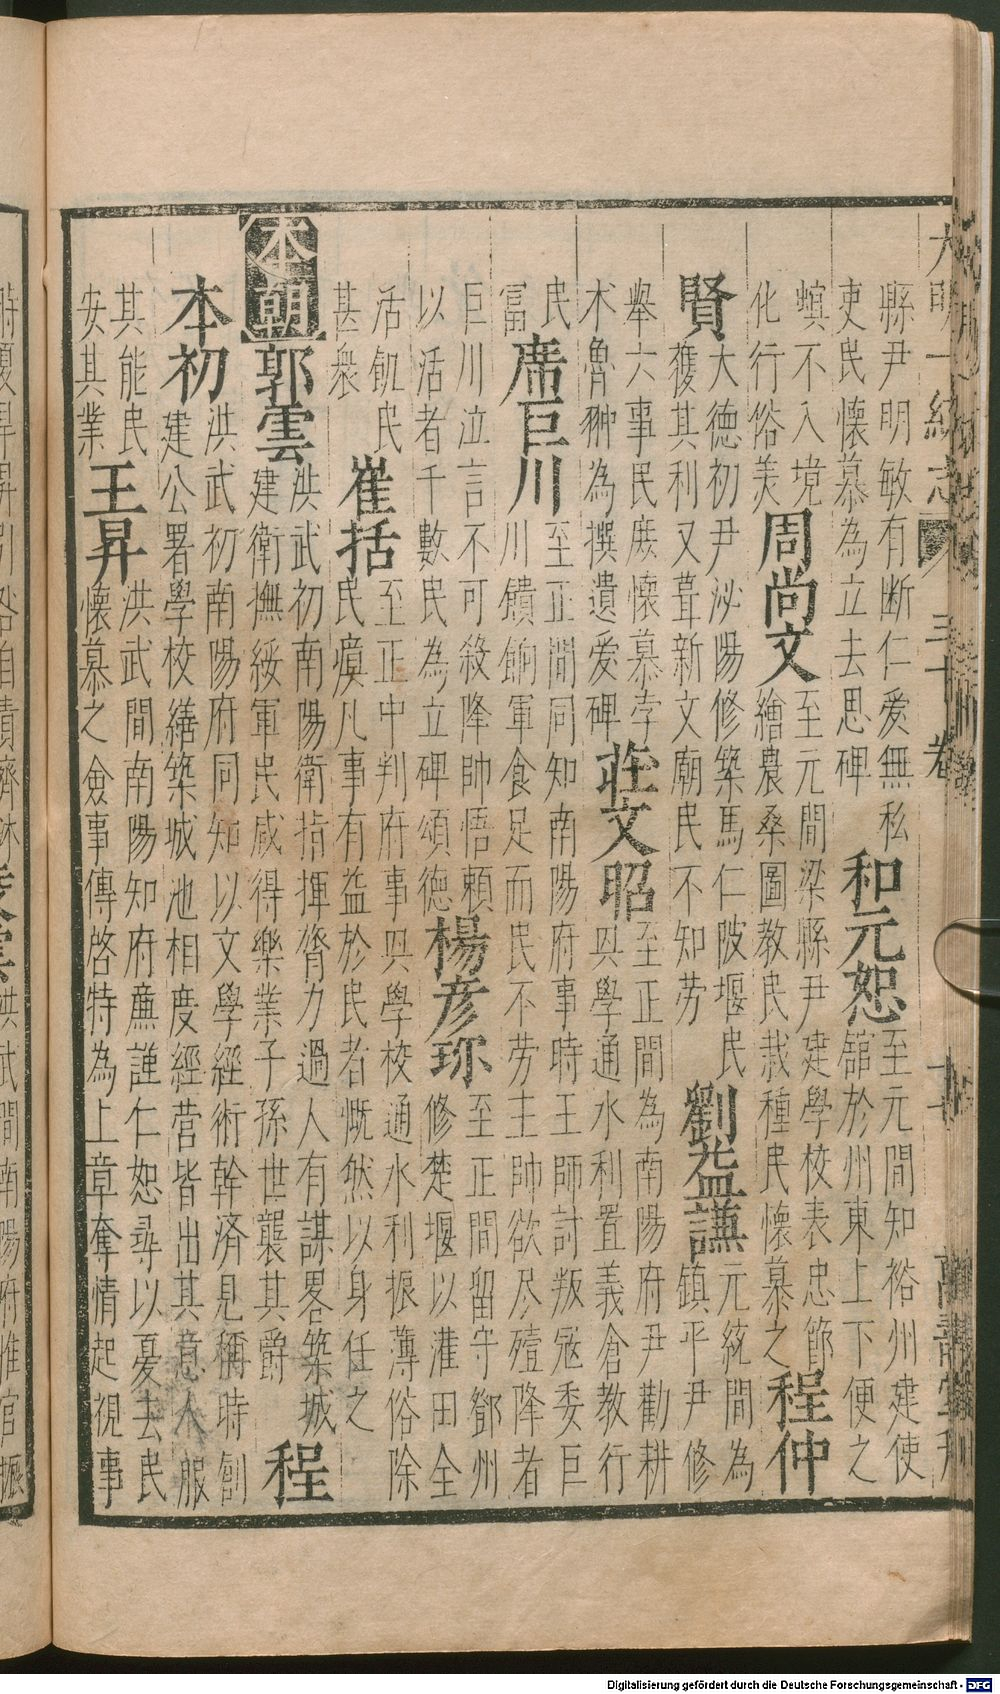 大明一統志 卷三十
縣尹明敏有斷仁愛無私
吏民懷慕為立去思碑
和元恕
至元間知裕州建使
舘於州東上下便之
蝗不入境
化行俗美
周尚文
至元間梁縣尹建學校表忠節
繪農桑圖教民栽種民懷慕之
程仲
賢
大德初尹泌陽修築馬仁陂堰民
獲其利又葺新文廟民不知劳
劉益謙
元統間為
鎮平尹修
舉六事民庶懷慕孛
术魯翀為撰遺爱碑
莊文昭
至正間為南陽府尹勸耕
興學通水利置義倉教行
民
富
席巨川
至正間同知南陽府事時王師討叛寇委巨
川饋餉軍食足而民不劳主帥欲尽殪降者
巨川泣言不可殺降帥悟頼
以活者千數民為立碑頌德
楊彦珎
至正間留守鄧州
修楚堰以灌田全
活飢民
甚衆
崔括
至正中判府事興學校通水利振薄俗除
民瘼凡事有益於民者慨然以身任之
本朝
郭雲
洪武初南陽衛指揮膂力過人有謀畧築城
建衛撫綏軍民咸得樂業子孫世襲其爵
程
本初
洪武初南陽府同知以文學經術幹済見稱時創
建公署學校繕築城池相度經营皆出其意人服
其能民
安其業
王昇
洪武間南陽知府蔗謹仁恕尋以憂去民
懷慕之僉事傳啓特為上章奪情起視事
洪武間南陽府推官振
Digitalisierung gefördert durch die Deutsche Forschungsgemeinschaft - DFG